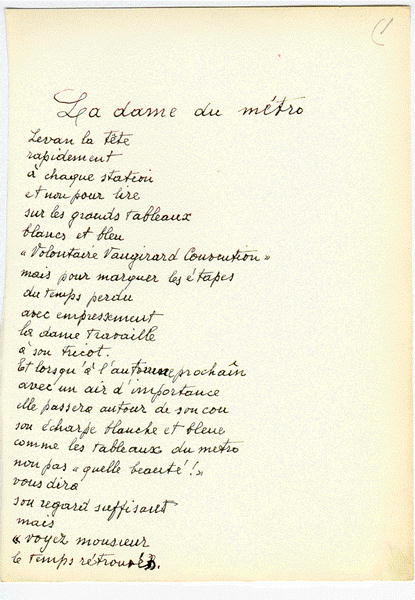 (1
La dame du métro
Levan la tête
rapidement
à chaque station
et non pour lire
sur les grands tableaux
blancs et bleu
"Volontaire Vaugirard Convention"
mais pour marquer les étapes
du temps perdu
avec empressement
la dame travaille
à son tricot.
Et lorsqu'à l'automne prochaîn
avec un air d'importance
elle passera autour de son cou
son écharpe blanche et bleue
comme les tableaux du metro
non pas "quelle beauté!"
vous dira
son regard suffisant
mais
« voyez monsieur
le temps rétrouvé».